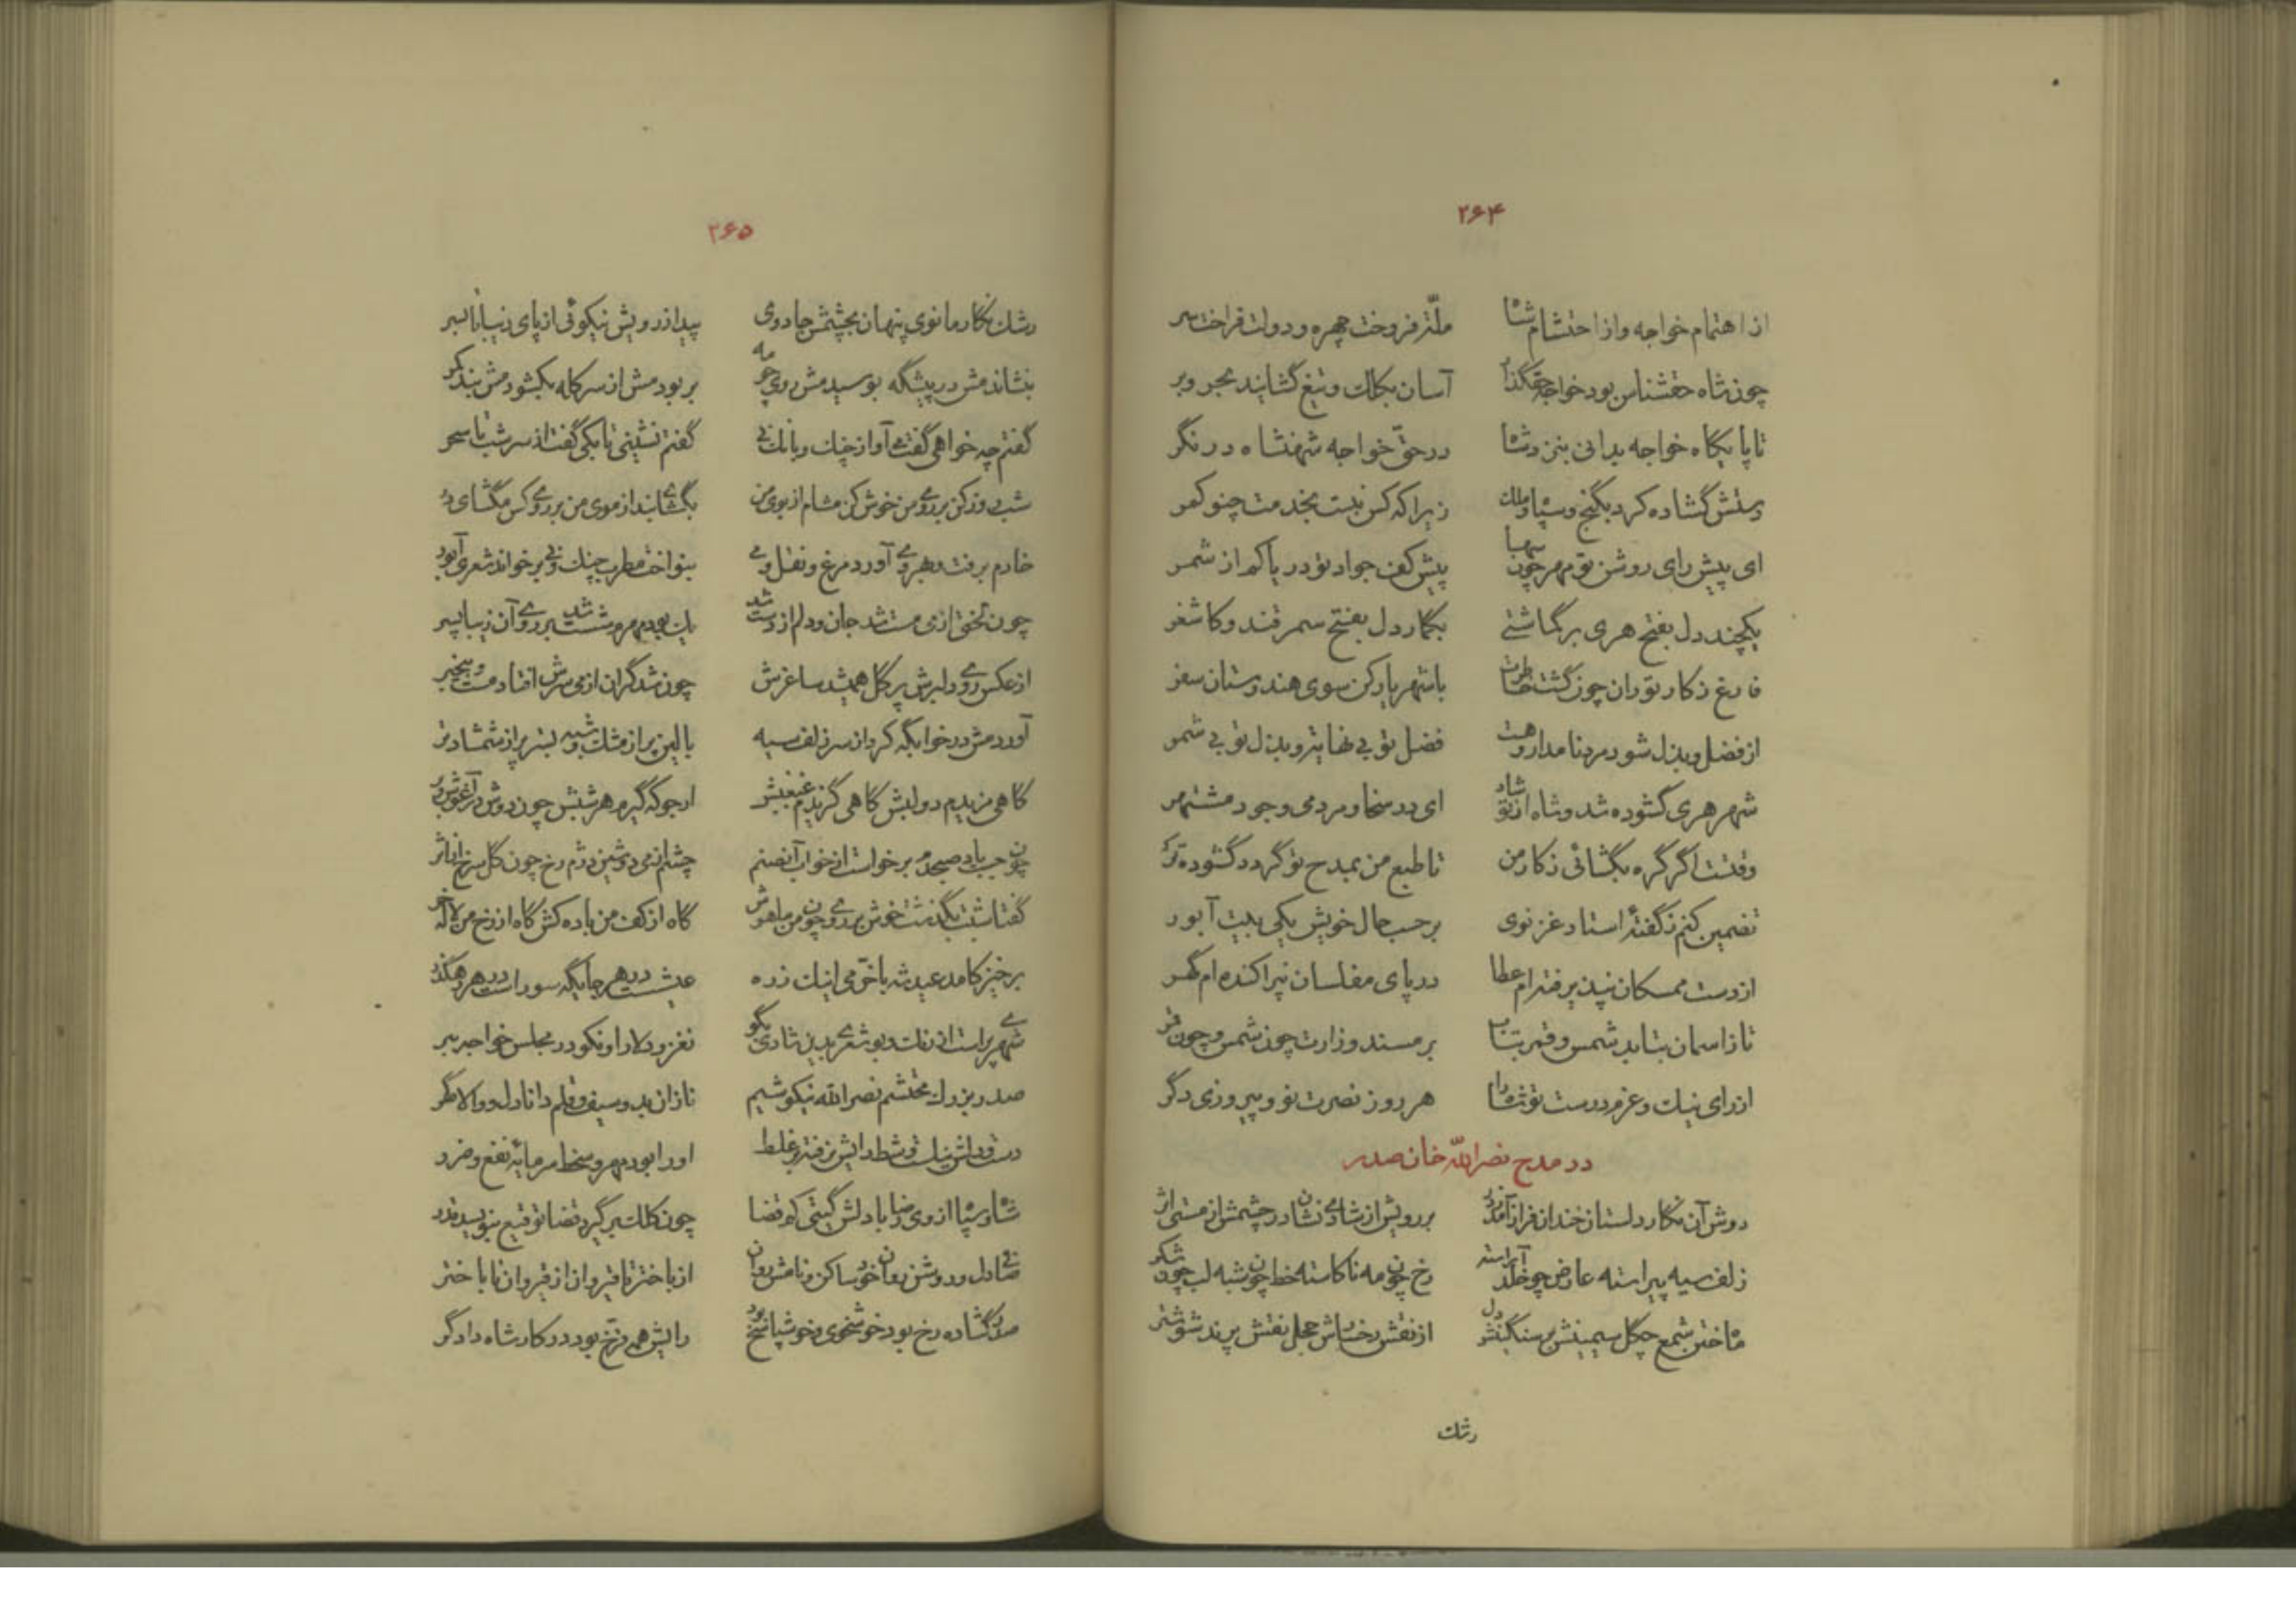 ۲۶۴
از اهتمام خواجه و از احتشام شاه ملت فروخت چهره و دولت فراخت سر
چون شاه حقشناس بود خواجه حقگذار آسان بکلک و تیغ گشایند بحر و بر
تا پایگاه خواجه بدانی بنزد شاه در حقّ خواجه شهنشاه در نگر
دستش گشاده کرد بگنج و سپاه و ملک زیرا که کس نبست بخدمت چنو کمر
ای پیش رای روشن تو مهر چون سها پیش کف جواد تو دریا کم از شمر
یکچند دل بفتح هری بر گماشتی بگمار دل بفتح سمرقند و کاشغر
فارغ ز کار توران چون گشت خاطرت با شهریار کن سوی هندوستان سفر
از فضل و بذل شود مرد نامدار و هست فضل تو بی نهایت و بذل تو بی شمر
شهر هری گشوده شد و شاه از تو شاد ای در سخا و مردمی وجود مشتهر
وقتست اگر گره بگشائی ز کار من تا طبع من بمدح تو گردد گشوده تر
تضمین کنم ز گفتهٔ استاد غزنوی بر حسب حال خویش یکی بیت آبور
از دست ممسکان نپذیرفته‌ام عطا در پای مفلسان نپراکنده‌ام گهر
تا ز اسمان بتابد شمس و قمر بتاب بر مسند وزارت چون شمس و چون قمر
از رای نیک و عزم درست تو شاه را هر روز نصرت نو و پیروزی دگر
در مدح نصرالله خان صدر
دوش آن نگار دلستان خندان فراز آمد ز در بر رویش از شادی نشان در چشمش از مستی اثر
زلف سیه پیراسته عارض چو خلد آراسته رخ چون مه ناکاسته خط چون شبه لب چون شکر
ماه ختن شمع چگل سیمینش بر سنگینش دل از نقش رخسارش خجل نقش پرند شوشتر
رشک
۲۶۵
رشک نگار مانوی پنهان بچشمش جادوی پیدا ز رویش نیکوئی از پای زیبا تا بسر
بنشاندمش در پیشگه بوسیدمش روی چو مه بربودمش از سر کله بگشودمش بند کمر
گفتم چه خواهی گفت می آواز چنگ و بانگ نی گفتم نشینی تا بکی گفت از سر شب تا سحر
شب روز کن بر روی من خوش کن مشام از بوی من بگشای بند از موی من بر روی کس مگشای در
خادم برفت و بهر وی آورد مرغ و نقل و می بنواخت مطرب چنگ و نی بر خواند شعری آبور
چون لختی از می مست شد جان و دلم از دست شد
از عکس روی دلبرش پر گل همیشد ساغرش چون شد گران از می سرش افتاد مست و بیخبر
آوردمش در خوابگه کرد از سر زلف سیه بالین پر از مشک و شبه بستر پر از شمشاد تر
گاهی مزیدم دو لبش گاهی گزیدم غبغبش ارجو که گیرم هر شبش چون دوش در آغوش و بر
چون جست باد صبحدم برخواست از خواب آنصنم چشم از می دوشین دژم رخ چون گل سرخ
گفتا شبت بگذشت خوش بر روی چون من ماهوش گاه از کف من باده کش گاه از رخ من لاله خور
برخیز کامد عید شه با خرّمی اینک ز ره عیشست در هر جایگه سور است در هر رهگذر
شهری پر است از رنگ و بو شعری بدین شادی بگو نغز و دلارا و نکو در مجلس خواجه ببر
صدر بزرگ محتشم نصرالله نیکو شیم نازان بدو سیف و قلم دانا دل و والا گهر
او را بود مهر و سخط سرمایهٔ نفع و ضرر
شاه و سپاه از وی رضا باد لش گیتی کم فضا چون کلک بر گیرد قضا توقیع بنویسد قدر
صافی دل و روشن روان خود ساکن و نامش روان از باختر تا قیروان از قیروان تا باختر
صدر گشاده رخ بود خوشخوی و خوش پاسخ بود رایش همه فرّخ بود در کار شاه دادگر